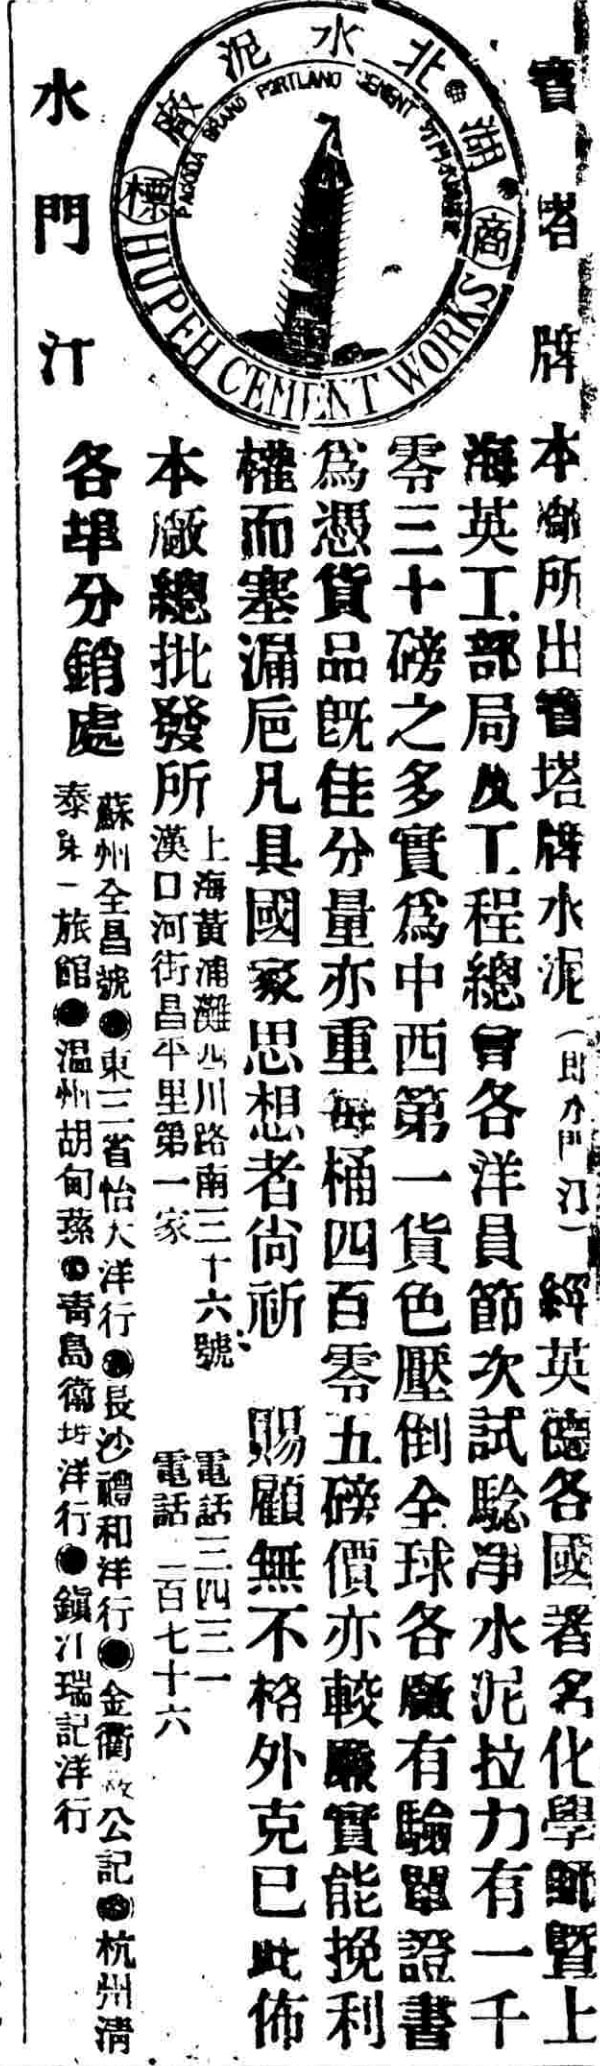 寶塔牌
水門汀
湖北水泥廠
商標
PAGODA BRAND PORTLAND CEMENT
HUPEH CEMENT WORKS
本廠所出寶塔牌水泥（即水門汀）經英德各國著名化學師暨上
海英工部局及工程總會各洋員節次試驗凈水泥拉力有一千
零三十磅之多實為中西第一貨色壓倒全球各廠有驗單證書
為憑貨品旣佳分量亦重每桶四百零五磅價亦較廉實能挽利
權而塞漏巵凡具國家思想者尚祈 賜顧無不格外克已此佈
本廠總批發所
上海黃浦灘四川路南三十六號 電話三四三一
漢口河街昌平里第一家 電話二百七十六
各埠分銷處
蘇州全昌號●東三省怡大洋行●長沙禮和洋行●金衢 公記●杭州淸
泰第一旅館●溫州胡甸蓀●靑島 洋行●鎭江瑞記洋行